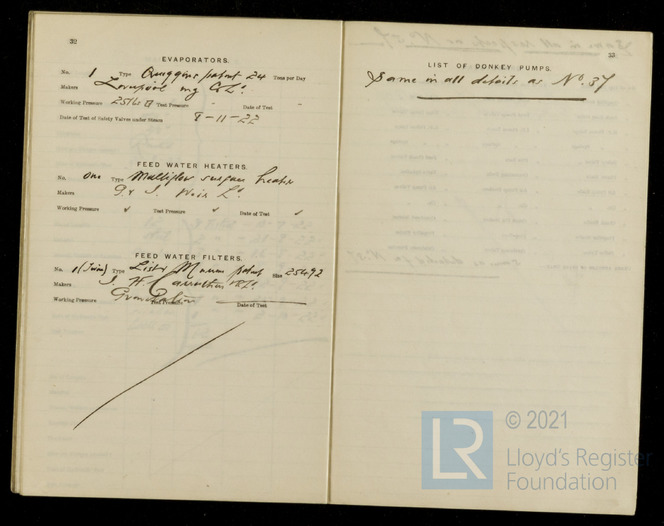 32
EVAPORATORS.
No. 1 Type Quiggins patent 24 Tons per Day
Makers Liverpool
Working Pressure 25 lb Test Pressure Date of Test
Date of Test of Safety Valves under Steam 8-11-22
FEED WATER HEATERS.
No. one Type Multiflow surface heater
Makers G & J. Weir Ld.
Working Pressure ✓ Test Pressure ✓ Date of Test ✓
FEED WATER FILTERS.
No. 1 (Twin) Type patent Size
Makers J. H. Carruthers & Co.
Working Pressure Test Pressure Date of Test
33
LIST OF DONKEY PUMPS.
Same in all details as No. 37
© 2021
LR
Lloyd's Register
Foundation